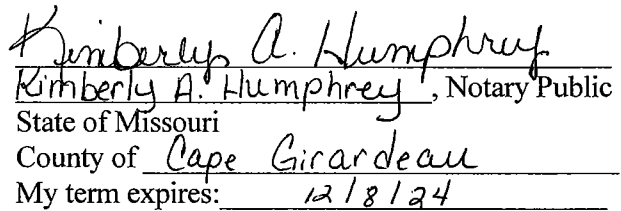 Kimberly A. Humphrey
Kimberly A. Humphrey, Notary Public
State of Missouri
County of Cape Girardeau
My term expires: 12/8/24